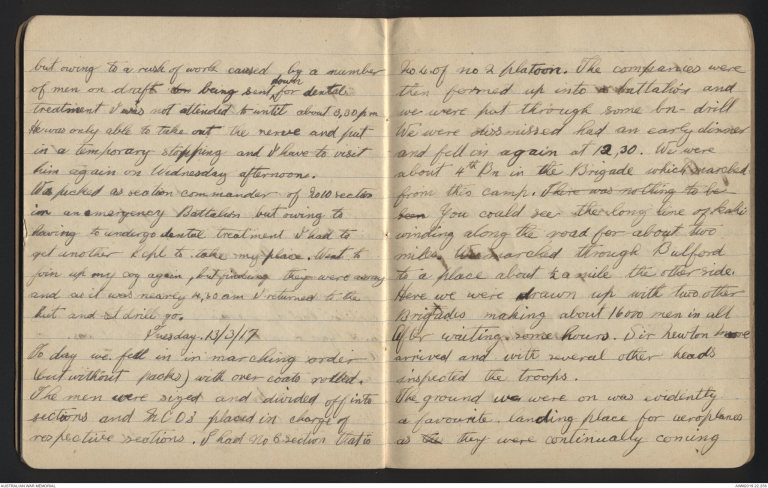 but owing to a rush of work caused by a number
of men on draft being sent down for dental
treatment I was not attended to until about 3,30 pm
He was only able to take out the nerve and put
in a temporary stopping and I have to visit
him again on Wednesday afternoon.
Was picked as section commander of No 10 section
in an emergency Battalion but owing to
having to undergo dental treatment I had to
get another Cpl to take my place. Went to
join up my coy again, but finding they were away
and as it was nearly 4,30 am I returned to the
hut and did drill go.
Tuesday. 13/3/17
To day we fell in in marching order
(but without packs) with over coats rolled.
The men were sized and divided off into
sections and N.C.O.s placed in charge of
respective sections. I had No 6 section that is
No 6. of no 2 platoon. The companies were
then formed up into a battalion and
we were put through some bn- drill
We were dismissed had an early dinner
and fell in again at 12,30. We were
about 4th Bn in the Brigade which marched
from this camp. There was nothing to be
seen You could see the long line of khaki
winding along the road for about two
miles. We marched through Bulford
to a place about ½ a mile the other side.
Here we were drawn up with two other
Brigades making about 16000 men in all
After waiting some hours. Sir Newton Moore
arrived and with several other heads
inspected the troops.
The ground we were on was evidently
a favourite landing place for aeroplanes
as the they were continually coming
AUSTRALIAN WAR MEMORIAL